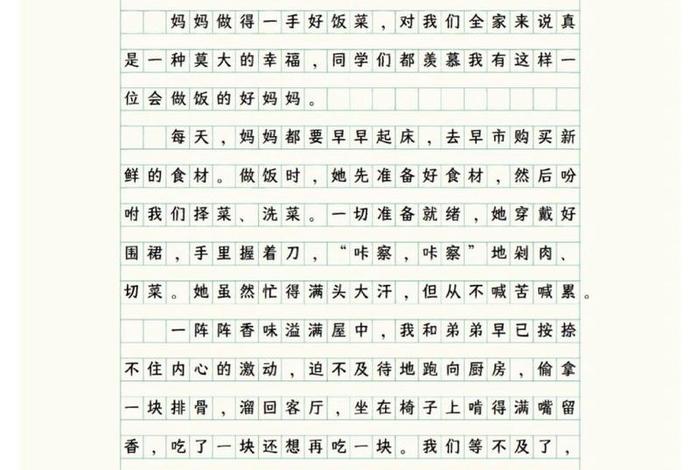 妈妈做得一手好饭菜，对我们全家来说真
是一种莫大的幸福，同学们都羡慕我有这样一
位会做饭的好妈妈。
每天，妈妈都要早早起床，去早市购买新
鲜的食材。做饭时，她先准备好食材，然后吩
咐我们择菜、洗菜。一切准备就绪，她穿戴好
围裙，手里握着刀，“咔察，咔察”地剁肉、
切菜。她虽然忙得满头大汗，但从不喊苦喊累。
一阵阵香味溢满屋中，我和弟弟早已按捺
不住内心的激动，迫不及待地跑向厨房，偷拿
一块排骨，溜回客厅，坐在椅子上啃得满嘴留
香，吃了一块还想再吃一块。我们等不及了，